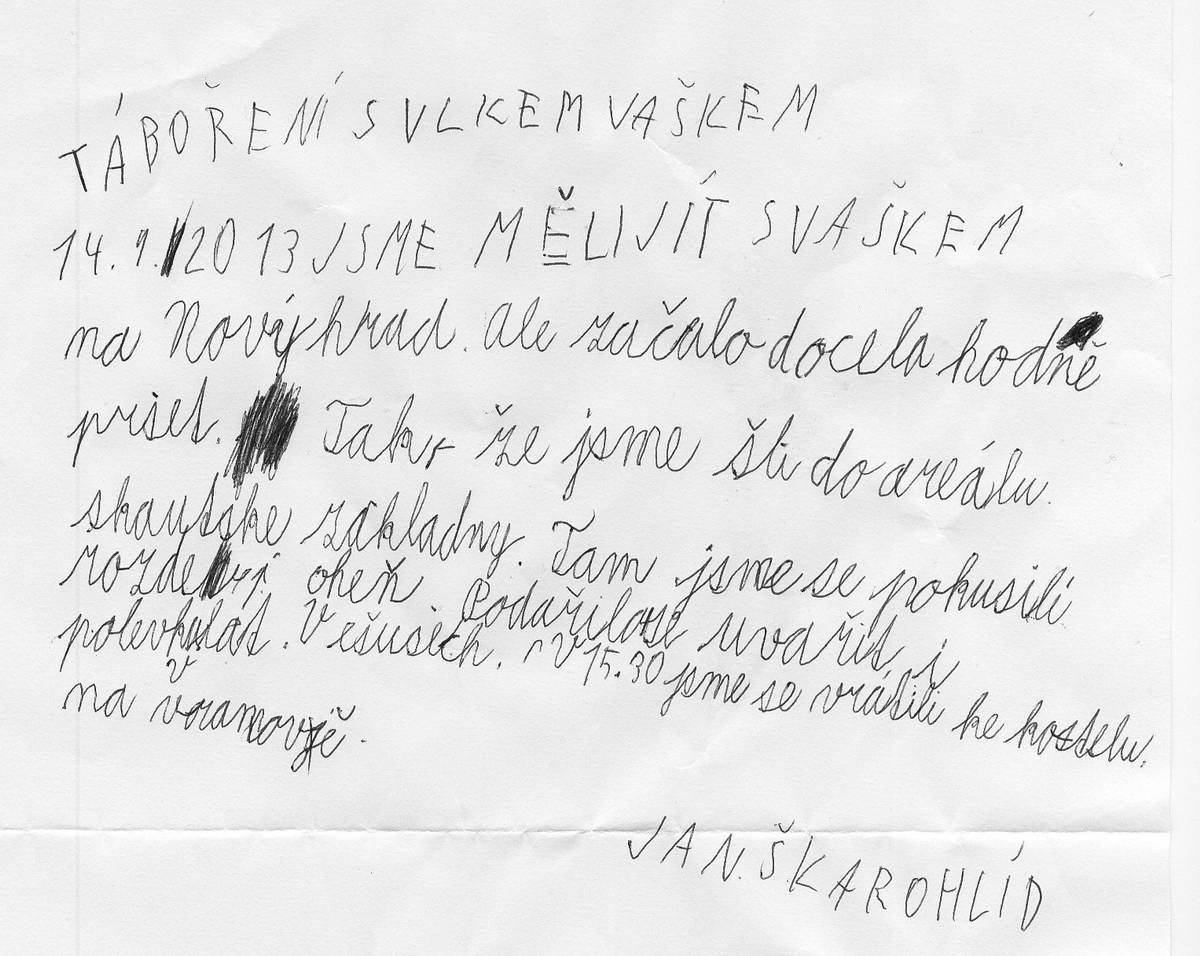 TÁBOŘENÍ S VLKEM VAŠKEM
14.9.2013 JSME MĚLI JÍT S VAŠKEM
na Nový hrad. Ale začalo docela hodně
pršet. Tak že jsme šli do areálu
skautske zakladny. Tam jsme se pokusili
rozdelat oheň. Podařilo se uvařit i
polevku. V ešusech. V 15.30 jsme se vrátili ke kostelu.
na vranově.
JAN ŠKAROHLÍD